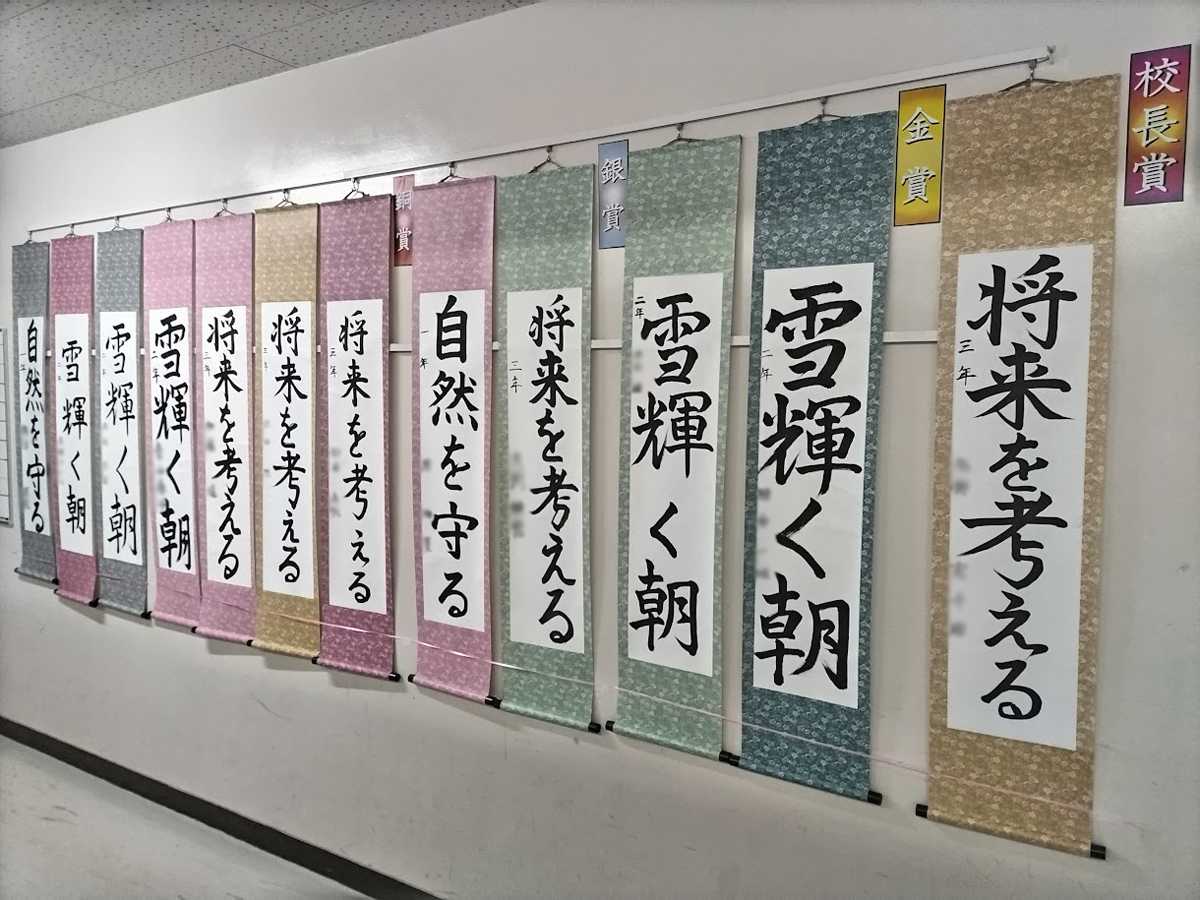 校長賞
将来を考える
三年
金賞
雪輝く朝
二年
雪輝く朝
二年
銀賞
将来を考える
三年
自然を守る
一年
銅賞
将来を考える
三年
将来を考える
三年
将来を考える
三年
雪輝く朝
二年
雪輝く朝
雪輝く朝
自然を守る
一年